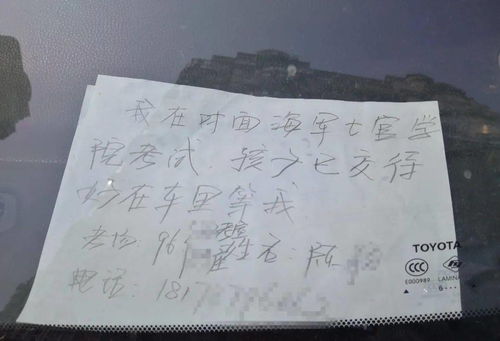 我在对面海军士官学
院考试.孩子已交待
好在车里等我
考场:96
姓名:陈
电话:181
TOYOTA
CCC
E000989
LAMINA